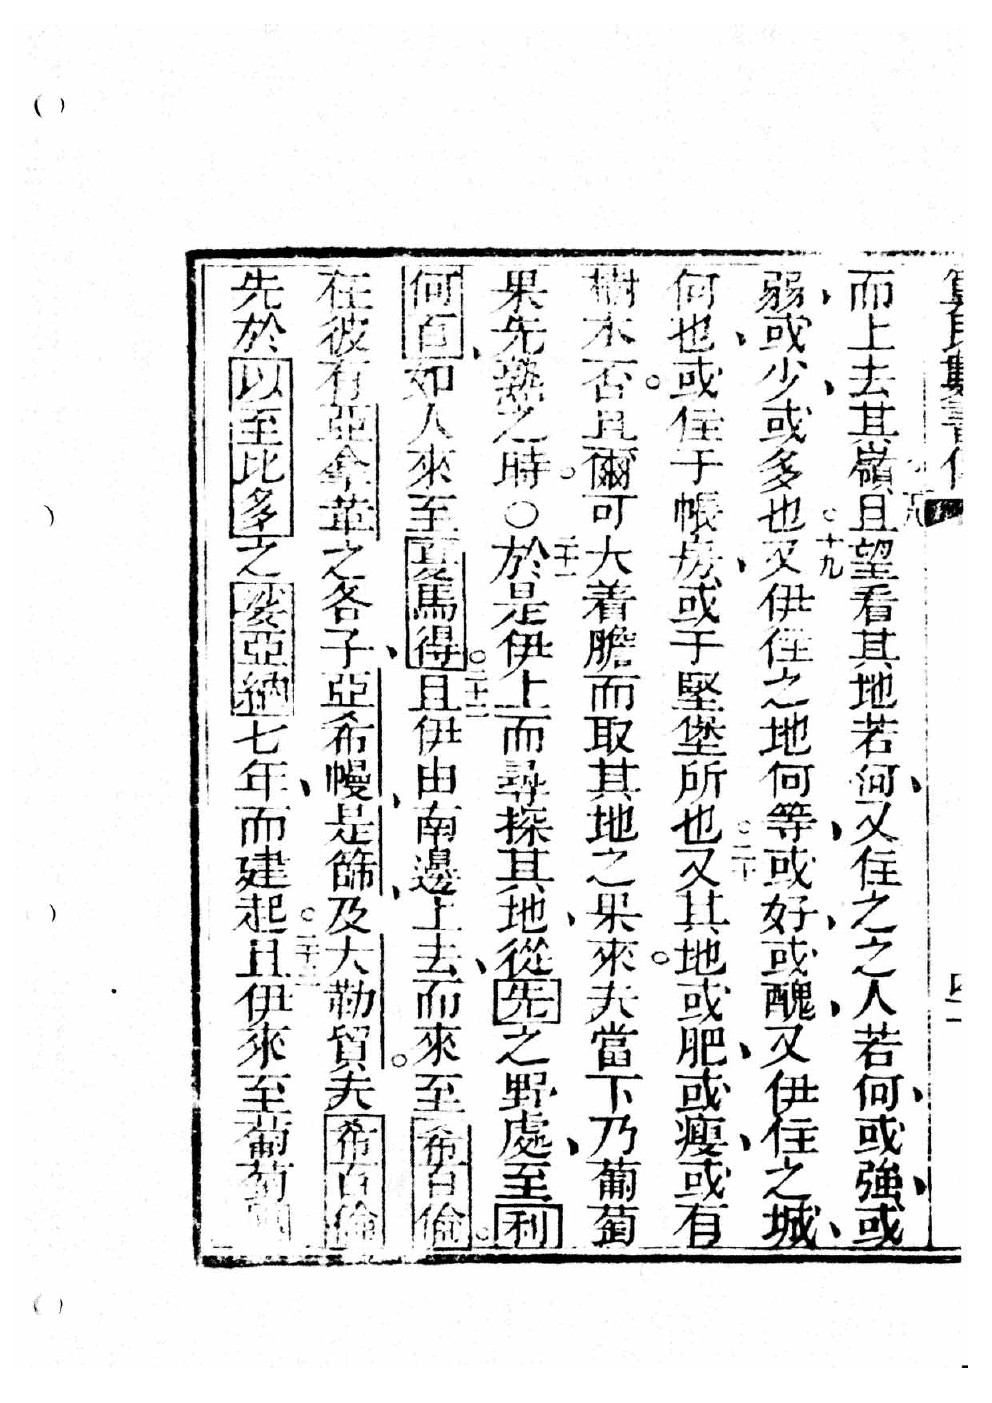 而上去其嶺且望看其地若何、又住之之人若何、或強、或
弱、或少、或多也。十九又伊住之地何等、或好、或醜、又伊住之城、
何也、或住于帳房、或于堅堡所也。二十又其地或肥、或瘦、或有
樹木否。且爾可大着膽而取其地之果來。夫當下乃葡萄
果先熟之時。○二十一於是伊上而尋探其地、從先之野處、至利
何百、如人來至夏馬得。二十二且伊由南邊上去、而來至希百倫。
在彼有亞拿革之各子、亞希幔、是篩、及大勒買。夫希百倫
先於以至比多之娑亞納七年、而建起。二十三且伊來至葡萄